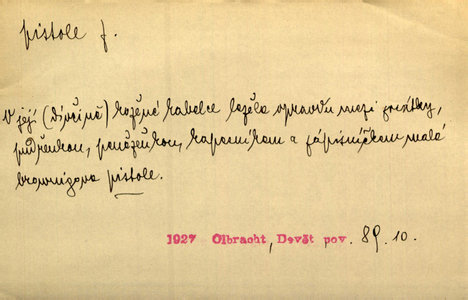 pistole f.
V její (dívčině) kožené kabelce ležela opravdu mezi zrcátky,
pudřenkou, peněženkou, kapesníkem a zápisníčkem malá
browningova pistole.
1927 Olbracht, Devět pov. 89.10.